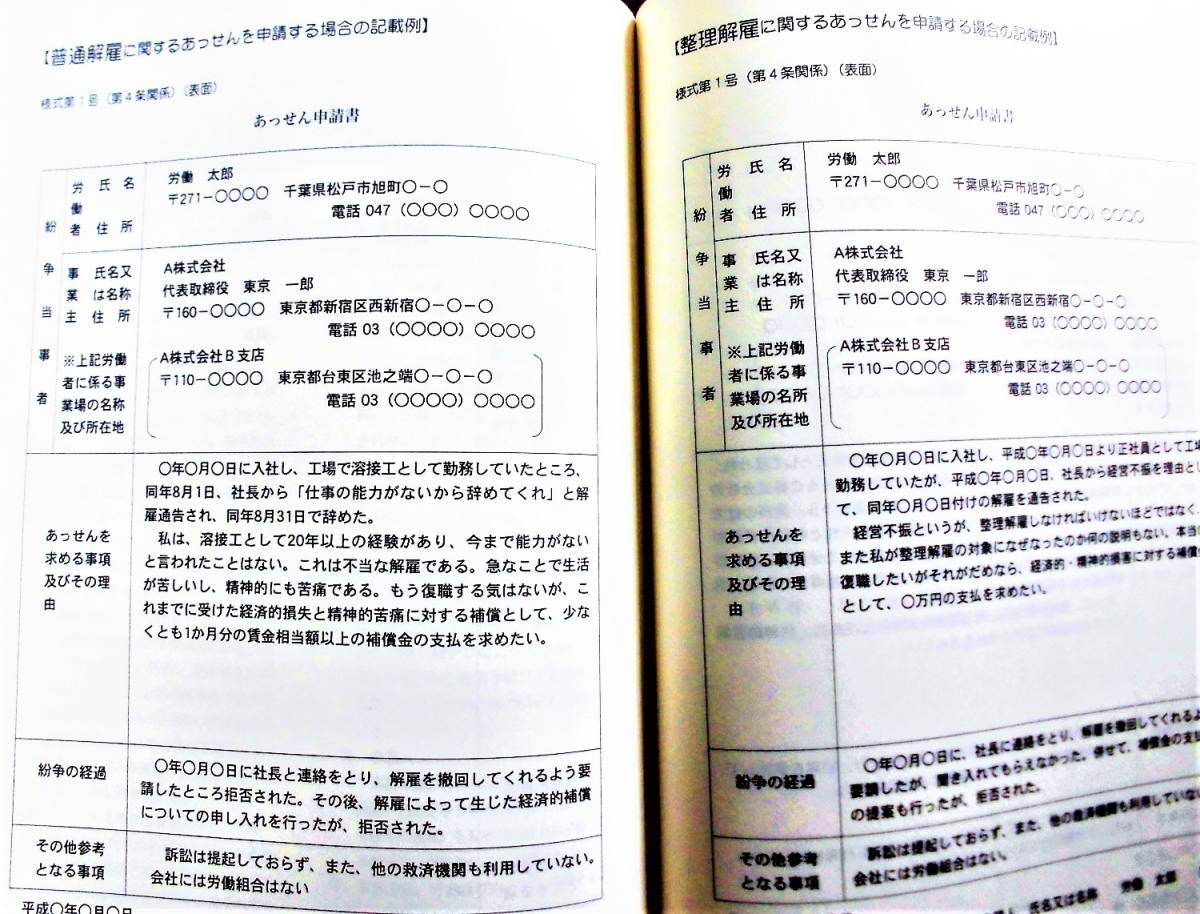 【普通解雇に関するあっせんを申請する場合の記載例】
様式第1号(第4条関係)(表面)
あっせん申請書
紛争当事者
労働者
氏名
住所
労働 太郎
〒271-○○○○ 千葉県松戸市旭町○-○
電話 047 (○○○) ○○○○
事業主
氏名又は名称
住所
A株式会社
代表取締役 東京 一郎
〒160-○○○○ 東京都新宿区西新宿○-○-○
電話 03 (○○○○) ○○○○
※上記労働
者に係る事
業場の名称
及び所在地
A株式会社B支店
〒110-○○○○ 東京都台東区池之端○-○-○
電話 03 (○○○○) ○○○○
あっせんを
求める事項
及びその理
由
○年○月○日に入社し、工場で溶接工として勤務していたところ、
同年8月1日、社長から「仕事の能力がないから辞めてくれ」と解
雇通告され、同年8月31日で辞めた。
私は、溶接工として20年以上の経験があり、今まで能力がない
と言われたことはない。これは不当な解雇である。急なことで生活
が苦しいし、精神的にも苦痛である。もう復職する気はないが、こ
れまでに受けた経済的損失と精神的苦痛に対する補償として、少な
くとも1か月分の賃金相当額以上の補償金の支払を求めたい。
紛争の経過
○年○月○日に社長と連絡をとり、解雇を撤回してくれるよう要
請したところ拒否された。その後、解雇によって生じた経済的補償
についての申し入れを行ったが、拒否された。
その他参考
となる事項
訴訟は提起しておらず、また、他の救済機関も利用していない。
会社には労働組合はない
平成○年○月○日
【整理解雇に関するあっせんを申請する場合の記載例】
様式第1号(第4条関係)(表面)
あっせん申請書
紛争当事者
労働者
氏名
住所
労働 太郎
〒271-○○○○ 千葉県松戸市旭町○-○
電話 047 (○○○) ○○○○
事業主
氏名又は名称
住所
A株式会社
代表取締役 東京 一郎
〒160-○○○○ 東京都新宿区西新宿○-○-○
電話 03 (○○○○) ○○○○
※上記労働
者に係る事
業場の名所
及び所在地
A株式会社B支店
〒110-○○○○ 東京都台東区池之端○-○-○
電話 03 (○○○○) ○○○○
あっせんを
求める事項
及びその理
由
○年○月○日に入社し、平成○年○月○日より正社員として工場
勤務していたが、平成○年○月○日、社長から経営不振を理由とし
て、同年○月○日付けの解雇を通告された。
経営不振というが、整理解雇しなければいけないほどではなく、
また私が整理解雇の対象になぜなったのか何の説明もない。本当に
復職したいがそれがだめなら、経済的・精神的損害に対する補償金
として、○万円の支払を求めたい。
紛争の経過
○年○月○日に、社長に連絡をとり、解雇を撤回してくれるよ
要請したが、聞き入れてもらえなかった。併せて、補償金の支払
の提案も行ったが、拒否された。
その他参考
となる事項
訴訟は提起しておらず、また、他の救済機関も利用していない
会社には労働組合はない。
人 氏名又は名称 労働 太郎